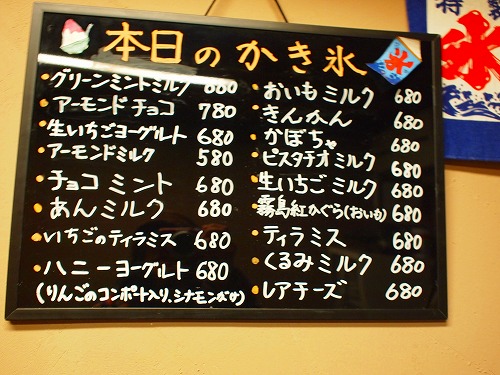 本日のかき氷
グリーンミントミルク 680
アーモンドチョコ 780
生いちごヨーグルト 680
アーモンドミルク 580
チョコミント 680
あんミルク 680
いちごのティラミス 680
ハニーヨーグルト 680
(りんごのコンポート入り、シナモン
おいもミルク 680
きんかん 680
かぼちゃ 680
ピスタチオミルク 680
生いちごミルク 680
霧島紅かぐら(おいも) 680
ティラミス 680
くるみミルク 680
レアチーズ 680
氷
氷